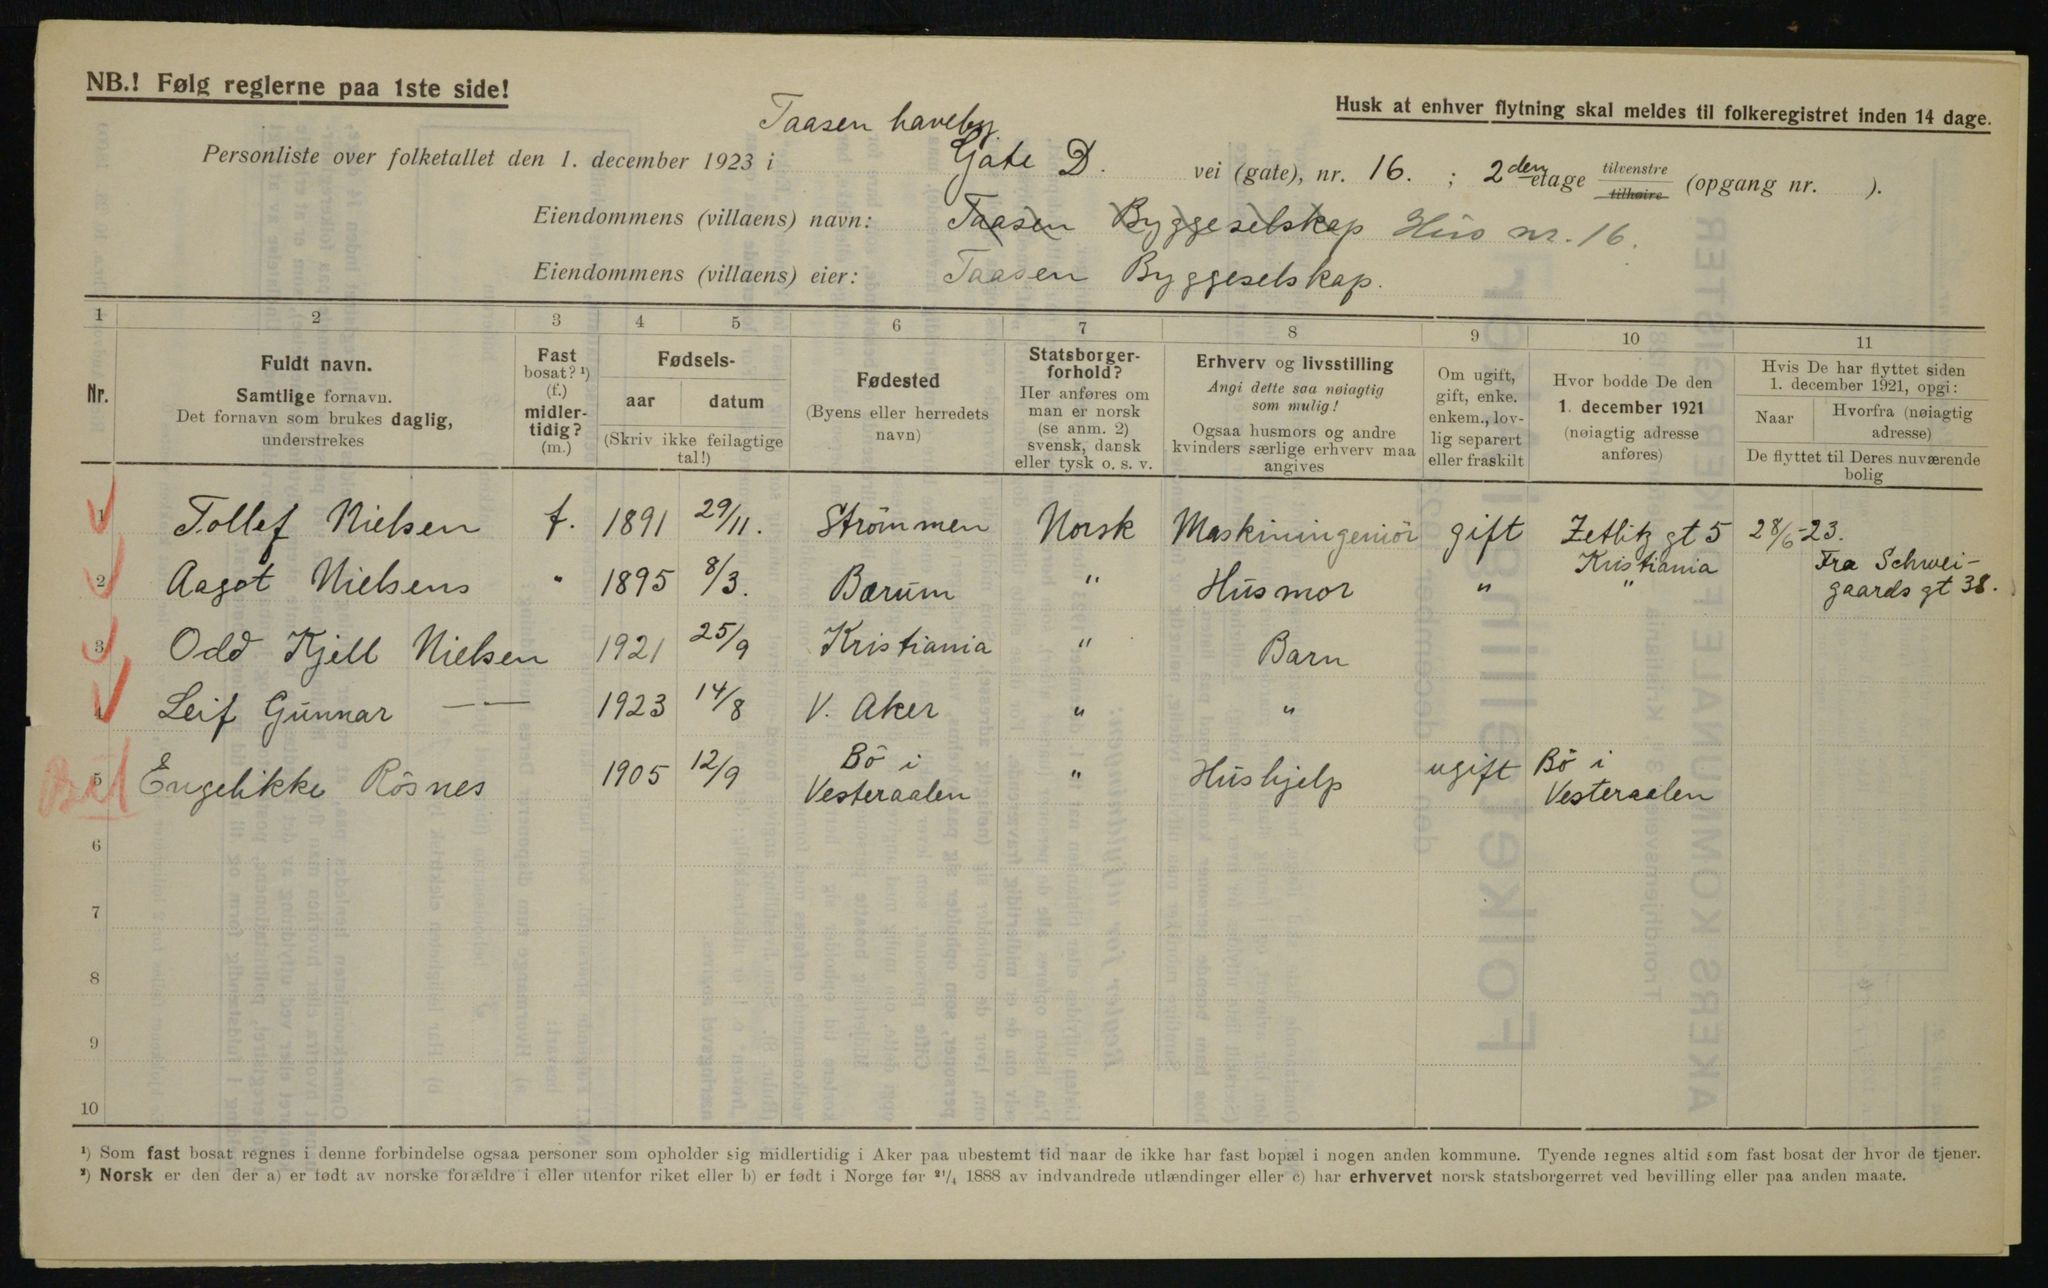 NB.! Følg reglerne paa 1ste side!
Husk at enhver flytning skal meldes til folkeregistret inden 14 dage.
Taasen haveby.
Personliste over folketallet den 1. december 1923 i Gate D. vei (gate), nr. 16. ; 2den etage tilvenstre tilhøire (opgang nr. ).
Eiendommens (villaens) navn: Taasen Byggeselskap Hus nr. 16.
Eiendommens (villaens) eier: Taasen Byggeselskap.
1 2 3 4 5 6 7 8 9 10 11
Nr.
Fuldt navn.
Samtlige fornavn.
Det fornavn som brukes daglig,
understrekes
Fast
bosat? ¹)
(f.)
midler-
tidig?
(m.)
Fødsels-
aar datum
(Skriv ikke feilagtige
tal!)
Fødested
(Byens eller herredets
navn)
Statsborger-
forhold?
Her anføres om
man er norsk
(se anm. 2)
svensk, dansk
eller tysk o. s. v.
Erhverv og livsstilling
Angi dette saa nøiagtig
som mulig!
Ogsaa husmors og andre
kvinders særlige erhverv maa
angives
Om ugift,
gift, enke.
enkem., lov-
lig separert
eller fraskilt
Hvor bodde De den
1. december 1921
(nøiagtig adresse
anføres)
Hvis De har flyttet siden
1. december 1921, opgi:
Naar Hvorfra (nøiagtig
adresse)
De flyttet til Deres nuværende
bolig
1 Tollef Nielsen f. 1891 29/11. Strömmen Norsk Maskiningeniör gift Zetlitz gt 5 28/6-23.
Kristiania Fra Schwei-
2 Aagot Nielsens " 1895 8/3. Bærum " Husmor " " gaards gt 38.
3 Odd Kjell Nielsen 1921 25/9 Kristiania " Barn
4 Leif Gunnar — — 1923 14/8 V. Aker " "
5 Engelikke Rösnes 1905 12/9 Bö i Vesteraalen " Hushjelp ugift Bö i Vesteraalen
6
7
8
9
10
¹) Som fast bosat regnes i denne forbindelse ogsaa personer som opholder sig midlertidig i Aker paa ubestemt tid naar de ikke har fast bopæl i nogen anden kommune. Tyende regnes altid som fast bosat der hvor de tjener.
²) Norsk er den der a) er født av norske forældre i eller utenfor riket eller b) er født i Norge før ²¹/₄ 1888 av indvandrede utlændinger eller c) har erhvervet norsk statsborgerret ved bevilling eller paa anden maate.